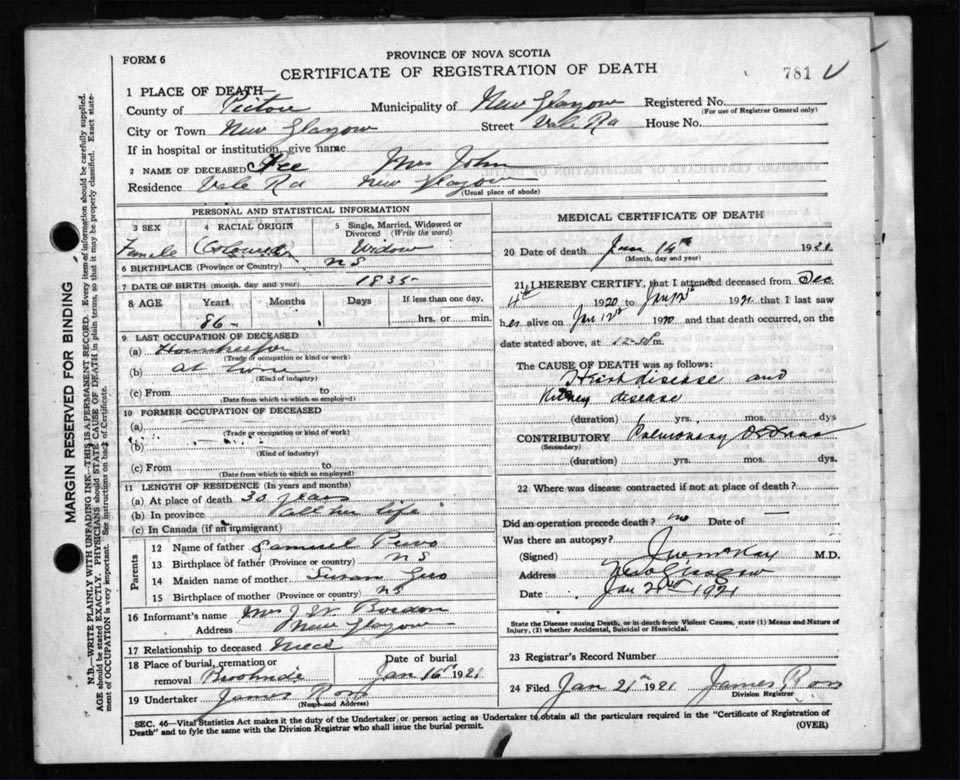 FORM 6
PROVINCE OF NOVA SCOTIA
CERTIFICATE OF REGISTRATION OF DEATH
781
1 PLACE OF DEATH
County of Pictou Municipality of New Glasgow Registered No.
(For use of Registrar General only)
City or Town New Glasgow Street Vale Rd House No.
If in hospital or institution, give name
2 NAME OF DECEASED Mrs John
Residence Vale Rd New Glasgow
(Usual place of abode)
PERSONAL AND STATISTICAL INFORMATION
3 SEX 4 RACIAL ORIGIN 5 Single, Married, Widowed or Divorced (Write the word)
Female Coloured Widow
6 BIRTHPLACE (Province or Country) NS
7 DATE OF BIRTH (month, day and year) 1835
8 AGE Years Months Days If less than one day,
86 hrs. or min.
9 LAST OCCUPATION OF DECEASED
(a) Housekeeper
(Trade or occupation or kind or work)
(b) at home
(Kind of industry)
(c) From to
(Date from which to which so employed)
10 FORMER OCCUPATION OF DECEASED
(a)
(Trade or occupation or kind of work)
(b)
(Kind of industry)
(c) From to
(Date from which to which so employed)
11 LENGTH OF RESIDENCE (In years and months)
(a) At place of death 30 years
(b) In province all her life
(c) In Canada (if an immigrant)
Parents
12 Name of father Samuel
13 Birthplace of father (Province or country) NS
14 Maiden name of mother Susan
15 Birthplace of mother (Province or country) NS
16 Informant's name Mrs J W Borden
Address New Glasgow
17 Relationship to deceased niece
18 Place of burial, cremation or removal Date of burial
Brookside Jan 16th 1921
19 Undertaker James Ross
(Name and Address)
MEDICAL CERTIFICATE OF DEATH
20 Date of death Jan 14th 1921
(Month, day and year)
21 I HEREBY CERTIFY, that I attended deceased from Dec
4th 1920 to Jan 12th 1921 that I last saw
her alive on Jan 12th 1920 and that death occurred, on the
date stated above, at 12-30 m.
The CAUSE OF DEATH was as follows:
Heart disease and
Kidney disease
(duration) yrs. mos. dys
CONTRIBUTORY Pulmonary
(Secondary)
(duration) yrs. mos. dys.
22 Where was disease contracted if not at place of death?
Did an operation precede death? no Date of
Was there an autopsy?
(Signed) J W McKay M.D.
Address New Glasgow
Date 1921
State the Disease causing Death, or in death from Violent Causes, state (1) Means and Nature of
Injury, (2) whether Accidental, Suicidal or Homicidal.
23 Registrar's Record Number
24 Filed Jan 21st 1921 James Ross
Division Registrar
SEC. 46—Vital Statistics Act makes it the duty of the Undertaker or person acting as Undertaker to obtain all the particulars required in the "Certificate of Registration of
Death" and to fyle the same with the Division Registrar who shall issue the burial permit. (OVER)
MARGIN RESERVED FOR BINDING
N.B.—WRITE PLAINLY WITH UNFADING INK—THIS IS A PERMANENT RECORD. Every item of information should be carefully supplied.
AGE should be stated EXACTLY. PHYSICIANS should STATE CAUSE OF DEATH in plain terms, so that it may be properly classified. Exact state-
ment of OCCUPATION is very important. See instructions on back of Certificate.